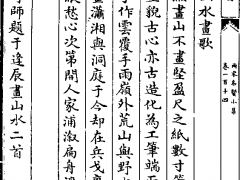 兩宋名賢小集
卷一百十四
水畫歌
畫山不畫堅盈尺之紙數寸
貌古心亦古造化為工筆端
作雲覆手雨嶺外荒山與野
瀟湘與洞庭于今却在兵戈
愁心次第閒人家浦漵扁舟
師題于逢辰畫山水二首